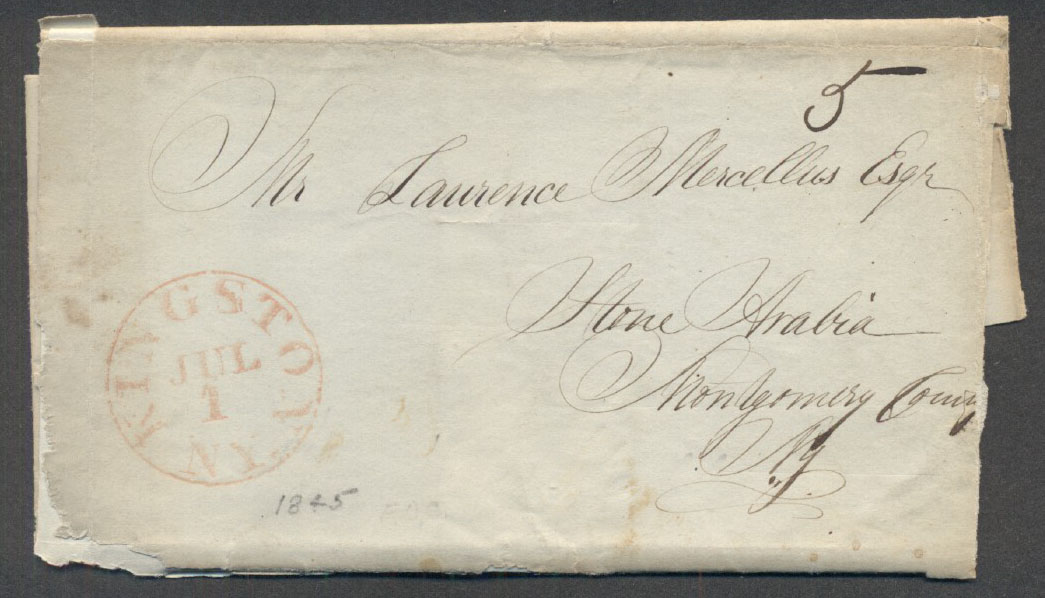 5
Mr Laurence Mercellus Esqr
Stone Arabia
Montgomery Couny
Ny
KINGSTON NY
JUL
1
1845